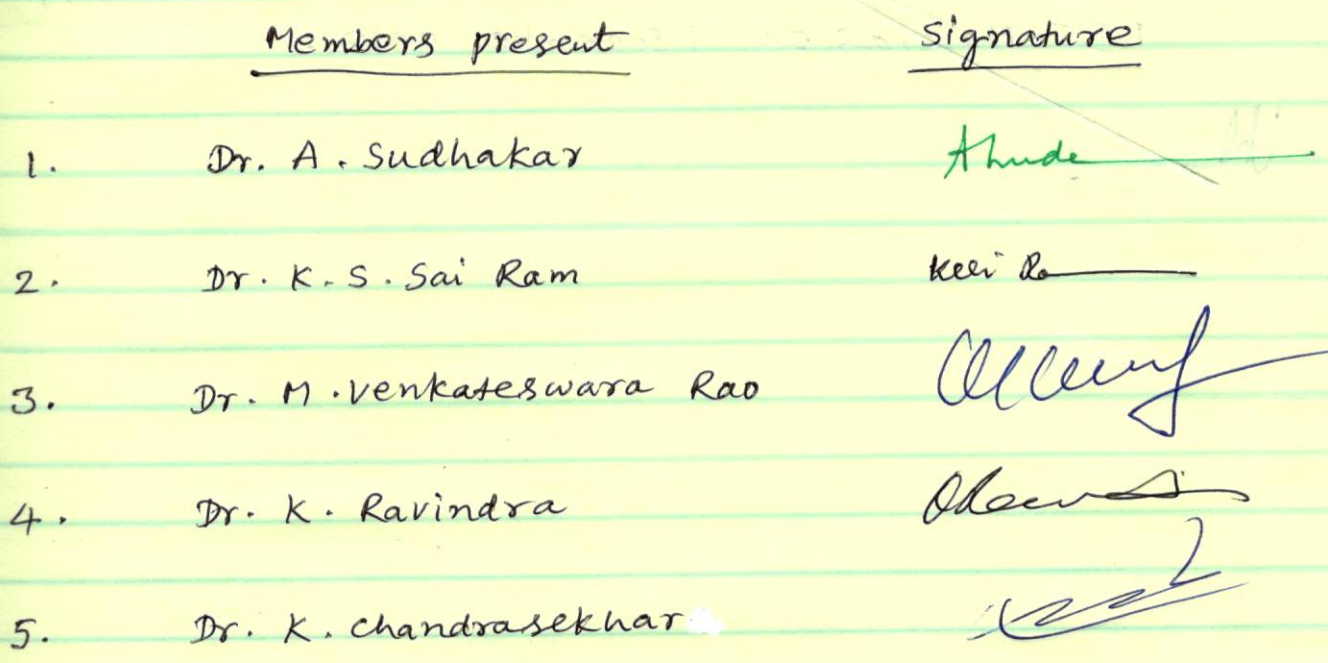 Members present Signature
1. Dr. A. Sudhakar
2. Dr. K. S. Sai Ram
3. Dr. M. Venkateswara Rao
4. Dr. K. Ravindra
5. Dr. K. Chandrasekhar